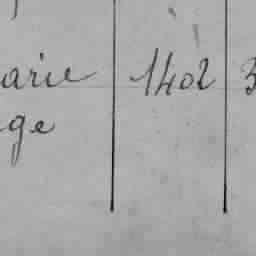 arie 1402 3
ge